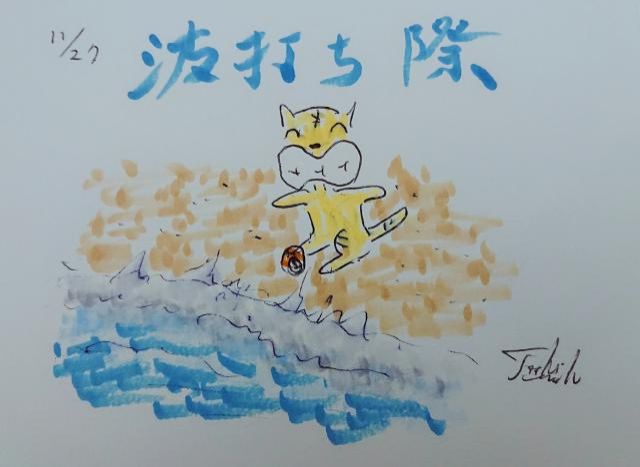 11/27
波打ち際